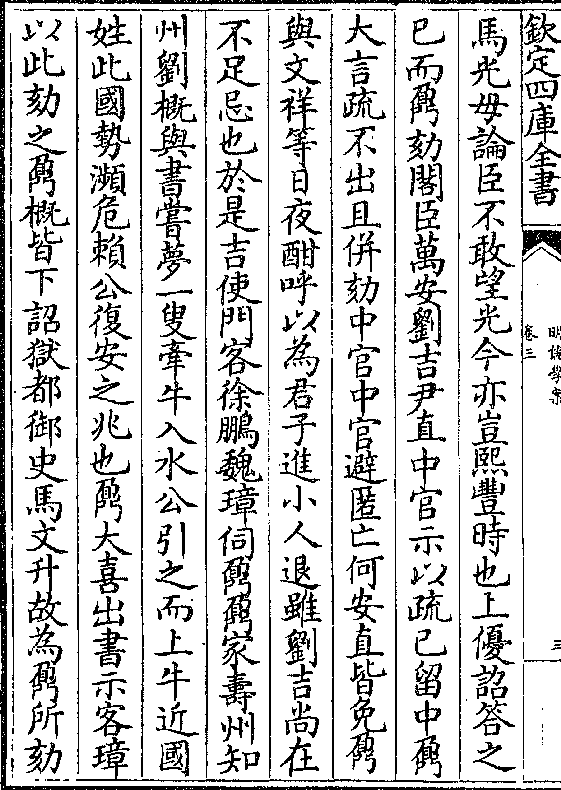 欽定四庫全書
明儒學案
卷三
三
馬光毋論臣不敢望光今亦豈熙豐時也上優詔答之
已而鼐劾閣臣萬安劉吉尹直中官示以疏已留中鼐
大言疏不出且併劾中官中官避匿亡何安直皆免鼐
與文祥等日夜酣呼以為君子進小人退雖劉吉尚在
不足忌也於是吉使門客徐鵬魏璋伺鼐鼐家壽州知
州劉概與書嘗夢一叟牽牛入水公引之而上牛近國
姓此國勢瀕危賴公復安之兆也鼐大喜出書示客璋
以此劾之鼐概皆下詔獄都御史馬文升故為鼐所劾